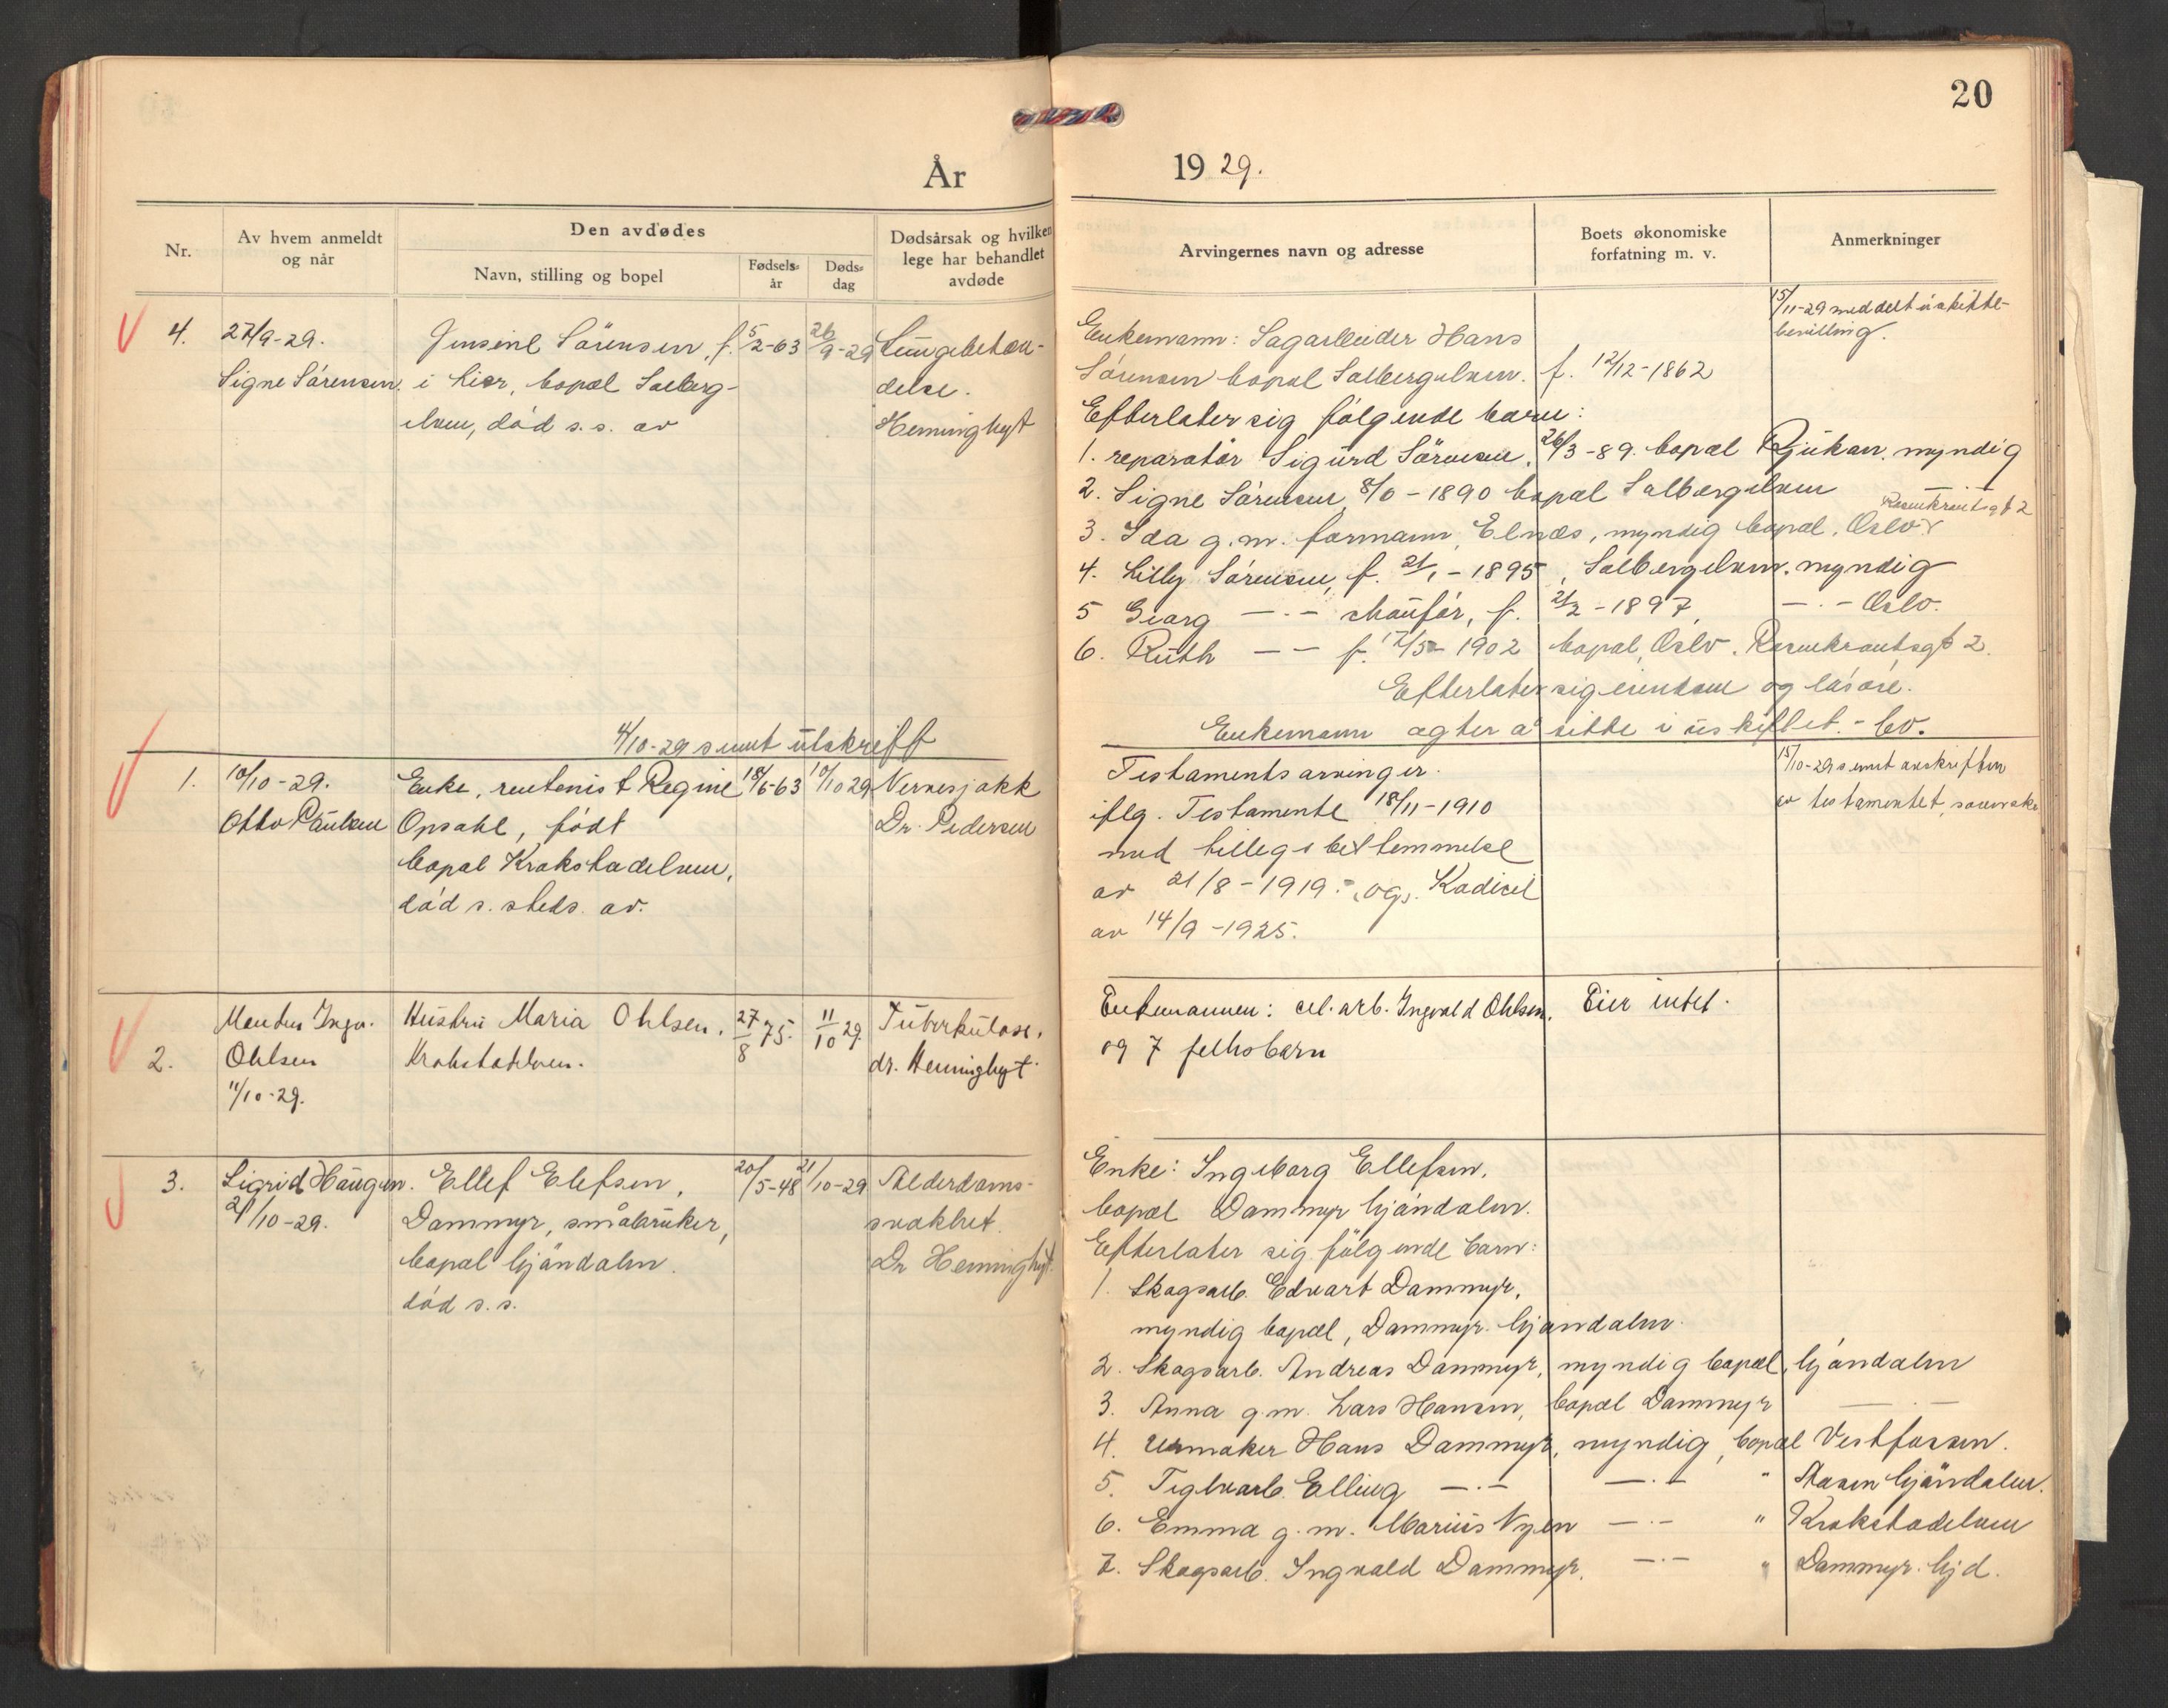 20
År
19 29.
Nr.
Av hvem anmeldt
og når
Den avdødes
Navn, stilling og bopel
Fødsels-
år
Døds-
dag
Dødsårsak og hvilken
lege har behandlet
avdøde
Arvingernes navn og adresse
Boets økonomiske
forfatning m. v.
Anmerkninger
4.
27/9-29.
Signe Sørensen
Jensine Sörensen, f.
i Lier, bopæl Solberg-
elven, död s.s. av
5/2-63
26/9-29
Lungebeten-
delse.
Heminghyt
Enkemann: Sagarbeider Hans
Sörensen bopæl Solbergelven. f. 12/12-1862
Efterlater sig fölgende barn:
1. reparatör Sigurd Sörensen, 26/3-89. bopæl Rjukan. myndig
2. Signe Sörensen 8/6-1890 bopæl Solbergelven
3. Ida g.m. formann Elnæs, myndig bopæl. Oslo Rosenkrantsgt 2
4. Lilly Sörensen, f. 21/1-1895, Solbergelven. myndig
5 Georg —.— chauför, f. 21/2-1897, —.— Oslo.
6. Ruth — — f. 17/5-1902 bopæl, Oslo. Rosenkrantsgt 2.
Efterlater sig eiendom og lösöre.
Enkemann agter å sitte i uskiftet - bo.
15/11-29 meddelt uskifte-
bevilling.
4/10-29 sendt utskrift
1.
10/10-29.
Otto Paulsen
Enke, rentenist Regine
Opsahl, födt
bopæl Krokstadelven,
död s. steds. av.
18/6-63
10/10 29
Nervesjokk
Dr. Pedersen
Testamentsarvinger.
iflg. Testamente 18/11-1910
med tillegsbestemmelse
av 21/8-1919 - og. Kodicil
av 14/9-1925.
15/10-29 sendt avskriften
av testamentet,
2.
Ingv.
Ohlsen
11/10-29.
Hustru Maria Ohlsen,
Krokstadelven.
27/8 75.
11/10 29.
Tuberkulose,
dr. Heminghyt.
Enkemannen: cel.arb. Ingvald Ohlsen,
og 7 fellesbarn
Eier intet.
3.
Sigrid Haugen.
21/10-29.
Ellef Elefsen,
Dammyr, småbruker,
bopæl Gjöndalen.
död s.s.
20/5-48
21/10-29
Alderdoms-
svakhet.
Dr Heminghyt.
Enke: Ingeborg Ellefsen,
bopæl Dammyr Gjöndalen.
Efterlater sig fölgende barn:
1. Skogsarb. Edvart Dammyr,
myndig bopæl, Dammyr. Gjöndalen.
2. Skogsarb. Andreas Dammyr, myndig bopæl, Gjöndalen
3. Anna g.m. Lars Hansen, bopæl Dammyr —.—
4. Urmaker Hans Dammyr, myndig, bopæl Vestfossen.
5. Teglverkarb. Elling —.— —.— " Åsen Gjöndalen.
6. Emma g.m. Marius Nyen —.— " Krokstadelven
7. Skogsarb. Ingvald Dammyr, —.— " Dammyr. Gjd.